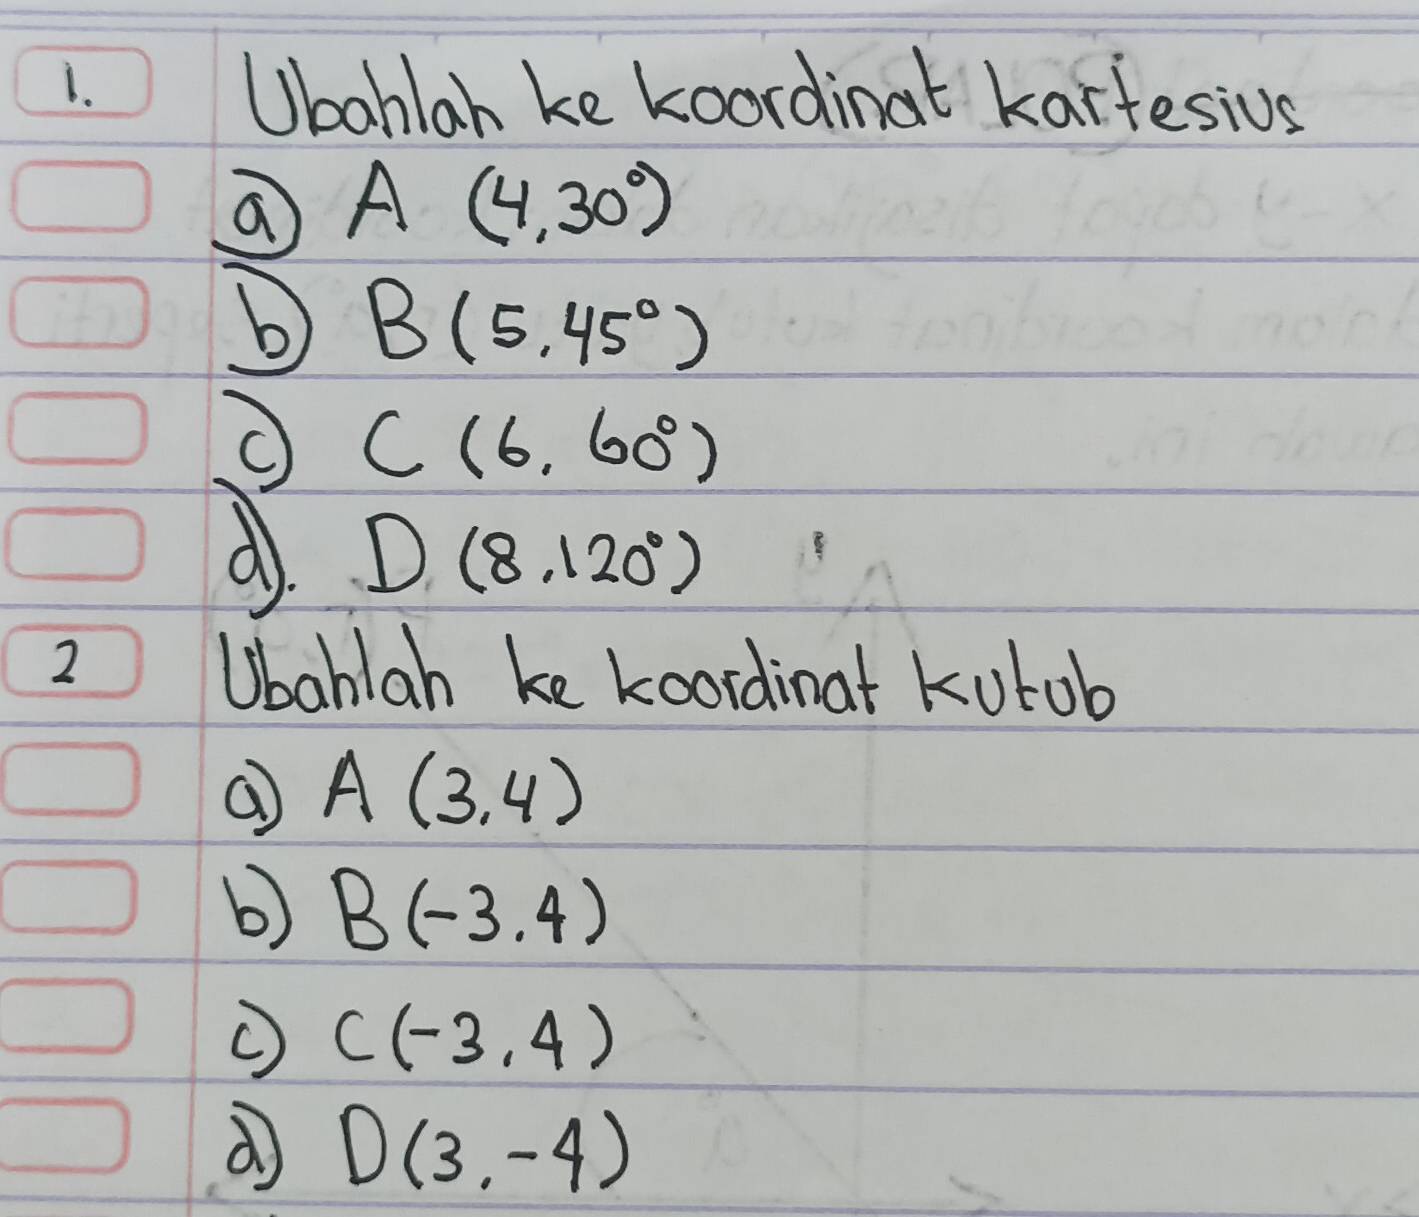 1. Ubahlah ke koordinat kartesius
a) A (4,30°)
b) B (5,45°)
c) C (6, 60°)
d). D (8,120°)
2 Ubahlah ke koordinat kutub
a) A (3,4)
b) B (-3.4)
c) C (-3,4)
d) D (3,-4)